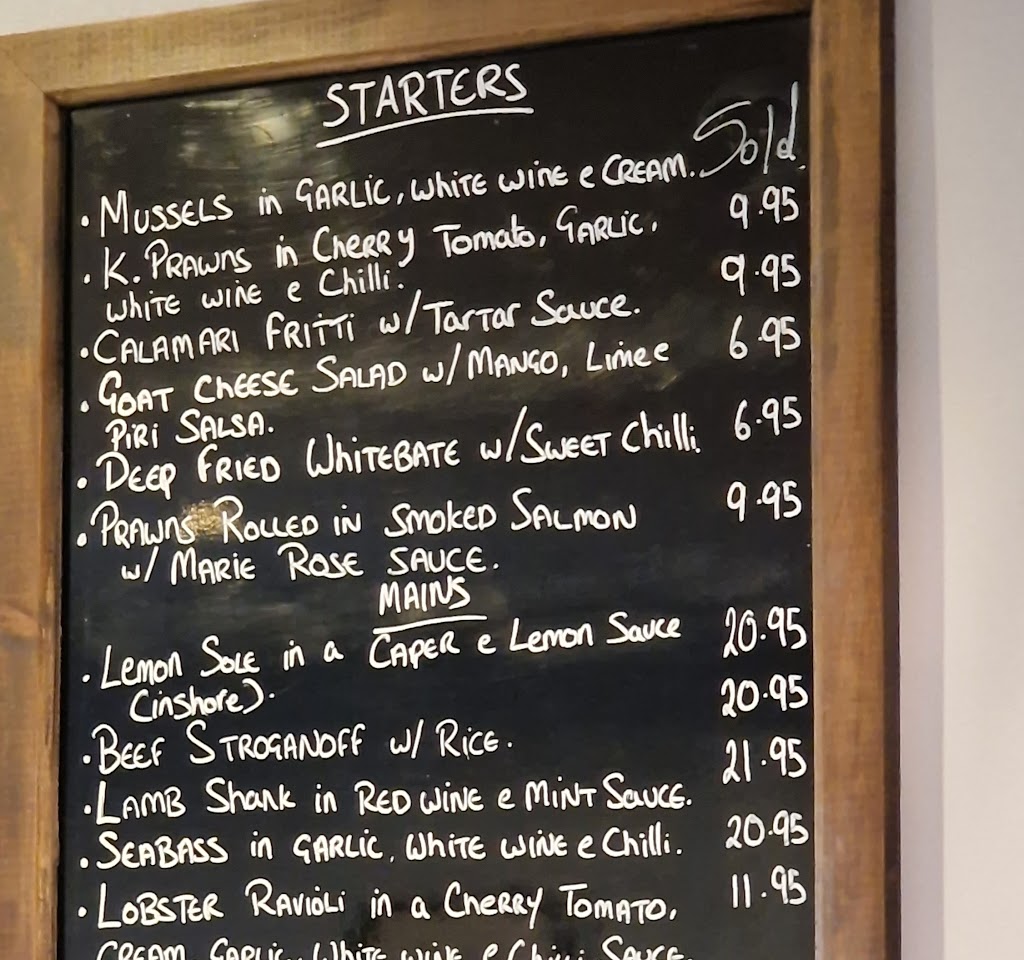 STARTERS
• MUSSELS in GARLIC, WHITE WINE e CREAM. Sold
• K. PRAWNS in CHERRY TOMATO, GARLIC, 9.95
WHITE WINE e Chilli.
• CALAMARI FRITTI w/ TARTAR SAUCE. 9.95
• GOAT CHEESE SALAD w/ MANGO, LIME e 6.95
PIRI SALSA.
• DEEP FRIED WHITEBATE w/ SWEET Chilli 6.95
• PRAWNS ROLLED IN SMOKED SALMON 9.95
w/ MARIE ROSE SAUCE.
MAINS
• LEMON SOLE in a CAPER e LEMON SAUCE 20.95
(inshore).
• BEEF STROGANOFF w/ RICE. 20.95
• LAMB Shank in RED WINE e MINT SAUCE. 21.95
• SEABASS in GARLIC, WHITE WINE e Chilli. 20.95
• LOBSTER RAVIOLI in a CHERRY TOMATO, 11.95
CREAM, GARLIC, WHITE WINE e Chilli SAUCE.